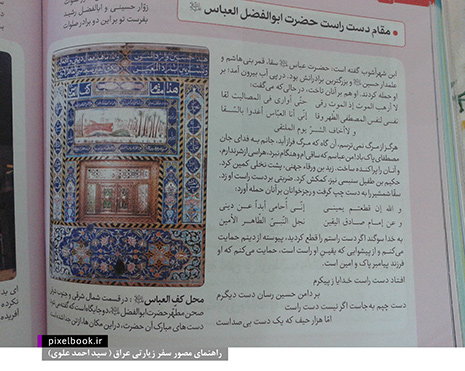 زوّار حسینی و ابوالفضل رشید
بفرست تو بر این دو برادر صلوات
مقام دست راست حضرت ابوالفضل العباس
ابن شهرآشوب گفته است: حضرت عباس سقا، قمر بنی هاشم و
علمدار حسین و بزرگترین برادرانش بود. در پی آب بیرون آمد؛ بر
او حمله کردند. او هم بر آنان تاخت، در حالی که می‌گفت:
لا أرهب الموت إذ الموت رقی حتّی أواری فی المصالیت لقا
نفسی لنفس المصطفی الطهر وقا إنّی أنا العبّاس أغدوا بالسّقا
و لا أخاف الشرّ یوم الملتقی
هرگز از مرگ نمی‌ترسم، آن گاه که مرگ فراز آید، جانم به فدای جان
مصطفای پاک باد! من عباسم که ساقی‌ام و هنگام نبرد، هراسی از شر ندارم.
و آنان را پراکنده ساخت. زید بن ورقاء جهنی، پشت نخلی کمین کرد.
حکیم بن طفیل سنبسی نیز، کمکش کرد. ضربتی بر دست راست او زد.
سقا شمشیر را به دست چپ گرفت و رجزخوانان بر آنان حمله آورد:
و الله إن قطعتم یمینی إنّی أحامی أبداً عن دینی
و عن إمام صادق الیقین نجل النّبیّ الطّاهر الأمین
به خدا سوگند اگر دست راستم را قطع کردید، پیوسته از دینم حمایت
می‌کنم و از پیشوایی که یقین او راست است، حمایت می‌کنم که او
فرزند پیامبر پاک و امین است.
افتاد دست راست خدایا ز پیکرم
بر دامن حسین رسان دست دیگرم
دست چپم به جاست اگر نیست دست راست
امّا هزار حیف که یک دست بی صداست
محل کف العباس: در قسمت شمال شرقی و جنوب شرقی
صحن مطهر حضرت ابوالفضل، دو جایگاه است که گفته می‌شود
دست های مبارک آن حضرت، در این مکان‌ها، از تن
pixelbook.ir
راهنمای مصور سفر زیارتی عراق ( سید احمد علوی)